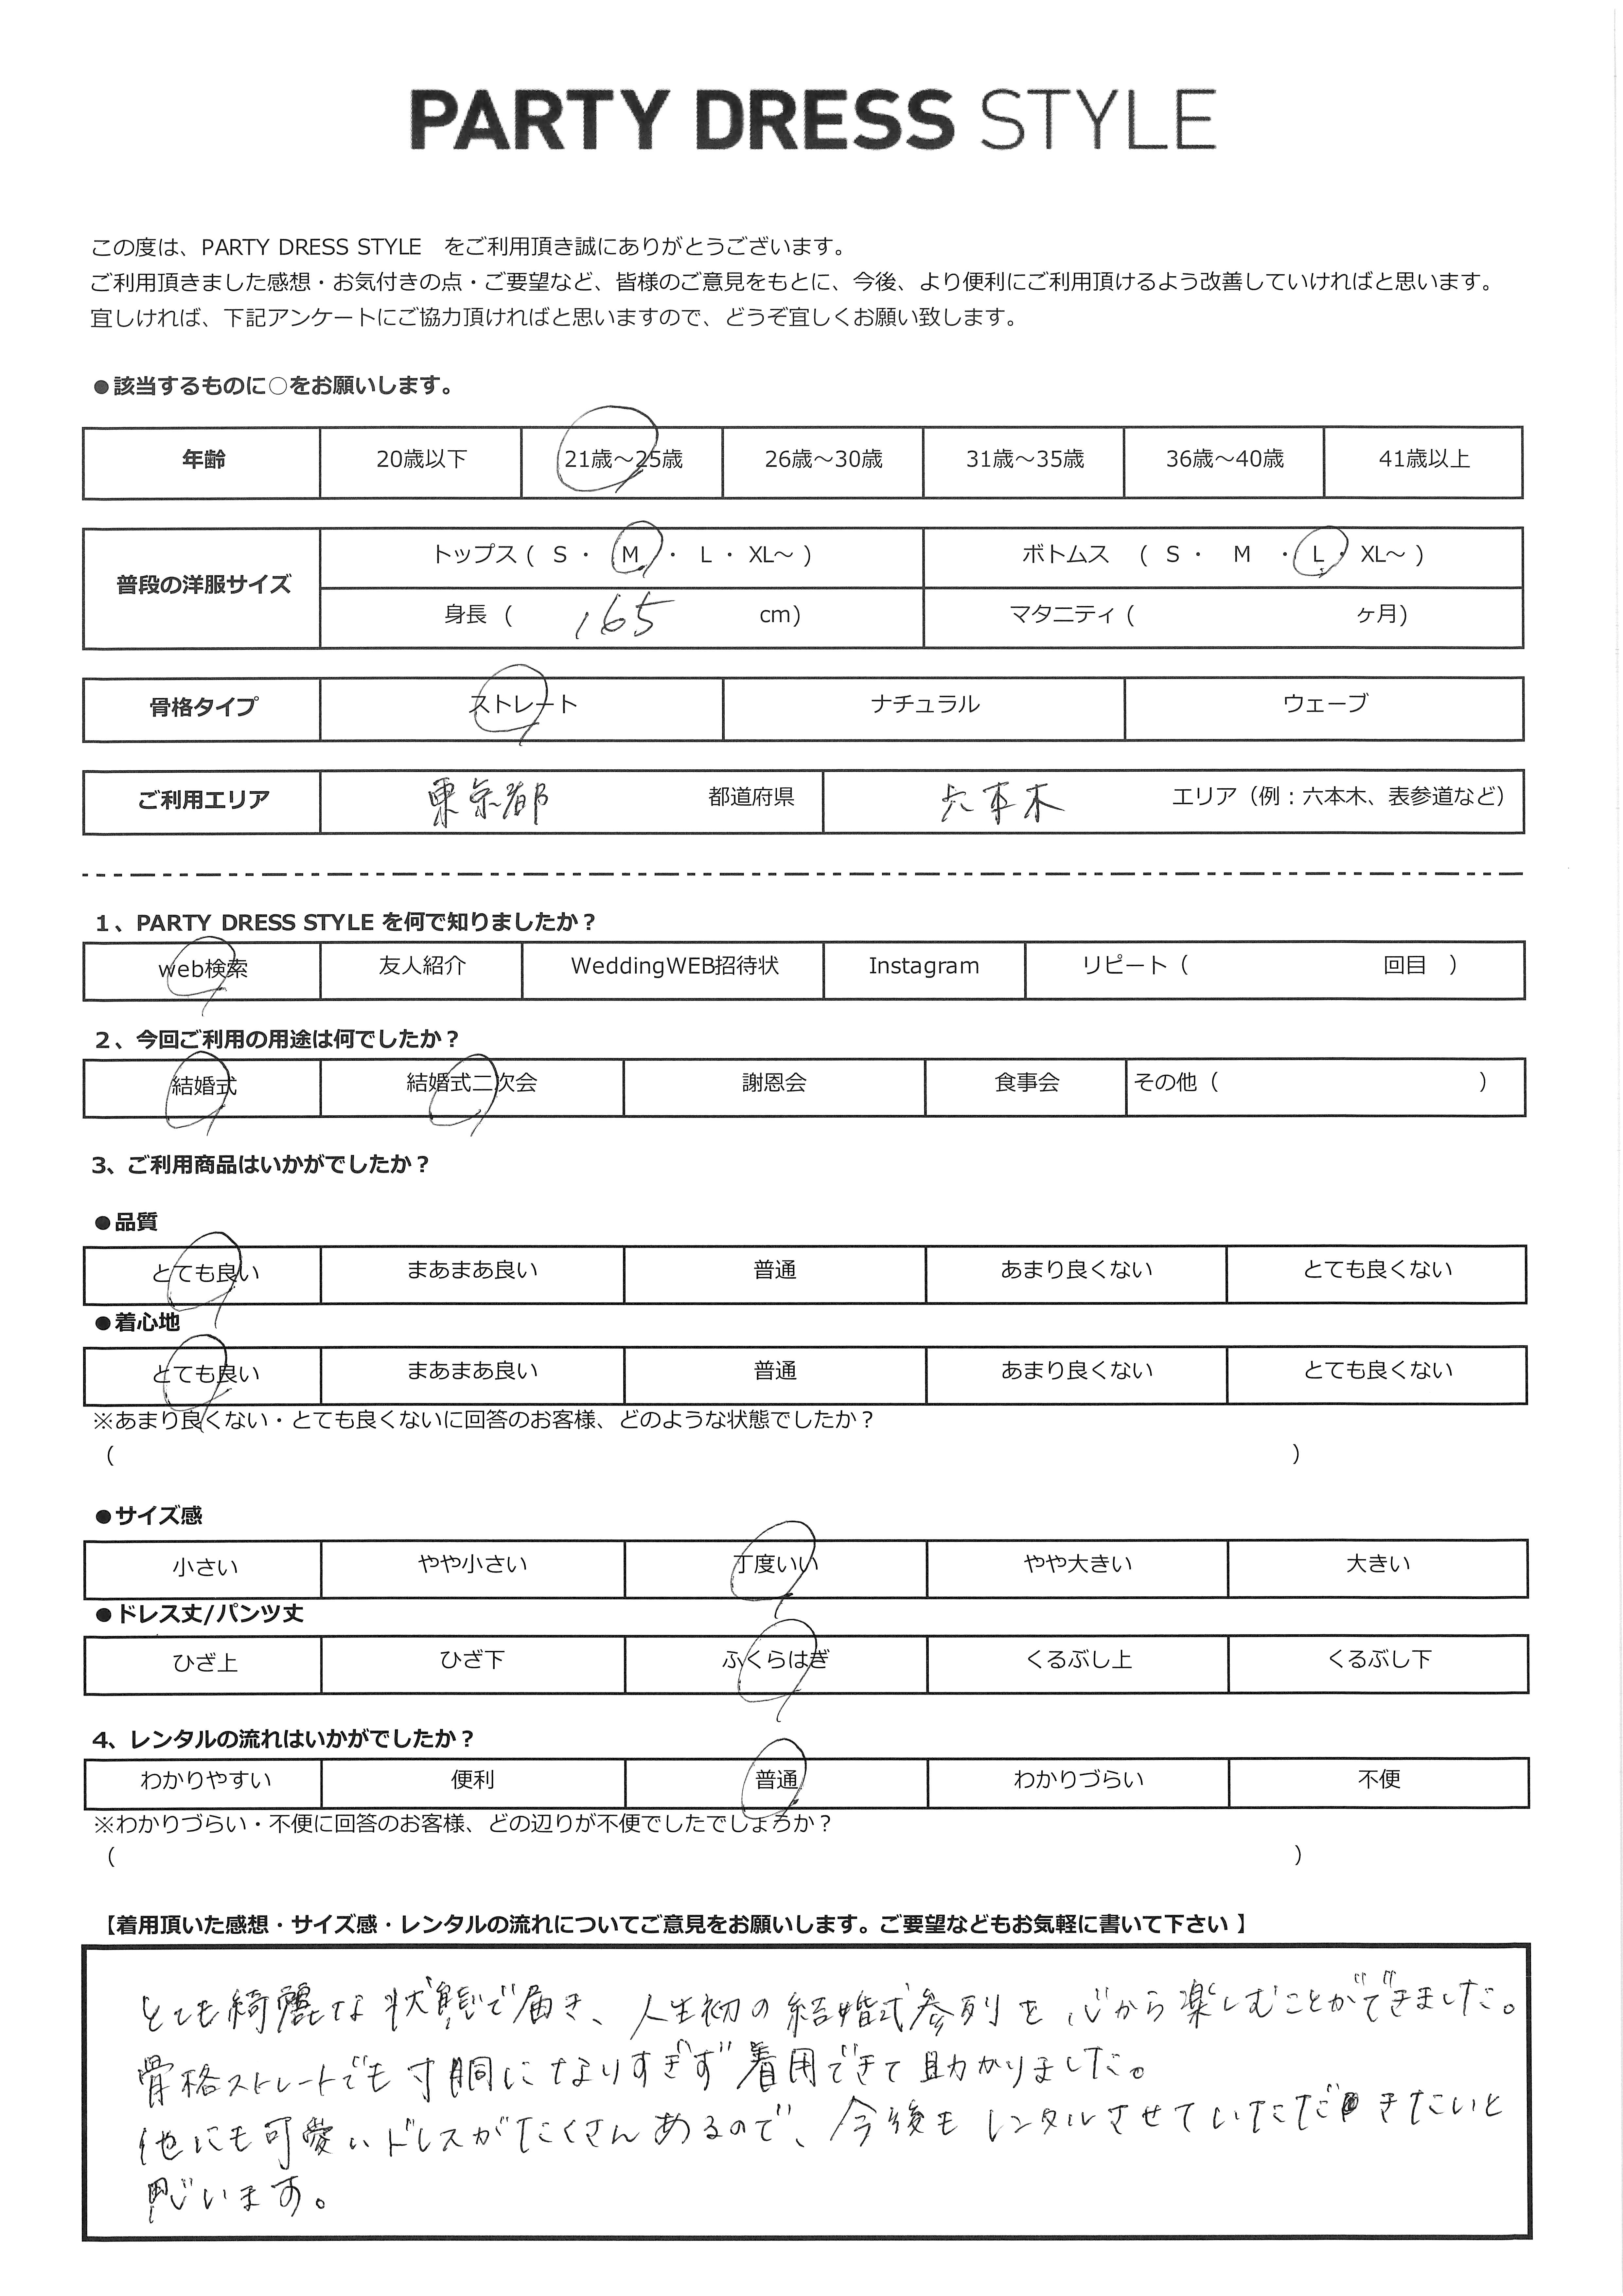 PARTY DRESS STYLE
この度は、PARTY DRESS STYLE　をご利用頂き誠にありがとうございます。
ご利用頂きました感想・お気付きの点・ご要望など、皆様のご意見をもとに、今後、より便利にご利用頂けるよう改善していければと思います。
宜しければ、下記アンケートにご協力頂ければと思いますので、どうぞ宜しくお願い致します。
●該当するものに○をお願いします。
年齢 20歳以下 21歳～25歳 26歳～30歳 31歳～35歳 36歳～40歳 41歳以上
普段の洋服サイズ トップス ( S ・ M ・ L ・ XL～ ) ボトムス ( S ・ M ・ L ・ XL～ )
身長 ( 165 cm) マタニティ ( ヶ月)
骨格タイプ ストレート ナチュラル ウェーブ
ご利用エリア 東京都 都道府県 六本木 エリア（例：六本木、表参道など）
1、PARTY DRESS STYLE を何で知りましたか？
web検索 友人紹介 WeddingWEB招待状 Instagram リピート（ 回目 ）
2、今回ご利用の用途は何でしたか？
結婚式 結婚式二次会 謝恩会 食事会 その他（ ）
3、ご利用商品はいかがでしたか？
●品質
とても良い まあまあ良い 普通 あまり良くない とても良くない
●着心地
とても良い まあまあ良い 普通 あまり良くない とても良くない
※あまり良くない・とても良くないに回答のお客様、どのような状態でしたか？
（ ）
●サイズ感
小さい やや小さい 丁度いい やや大きい 大きい
●ドレス丈/パンツ丈
ひざ上 ひざ下 ふくらはぎ くるぶし上 くるぶし下
4、レンタルの流れはいかがでしたか？
わかりやすい 便利 普通 わかりづらい 不便
※わかりづらい・不便に回答のお客様、どの辺りが不便でしたでしょろか？
（ ）
【着用頂いた感想・サイズ感・レンタルの流れについてご意見をお願いします。ご要望などもお気軽に書いて下さい 】
とても綺麗な状態で届き、人生初の結婚式参列を心から楽しむことができました。
骨格ストレートでも寸胴になりすぎず着用できて助かりました。
他にも可愛いドレスがたくさんあるので、今後もレンタルさせていただきたいと
思います。